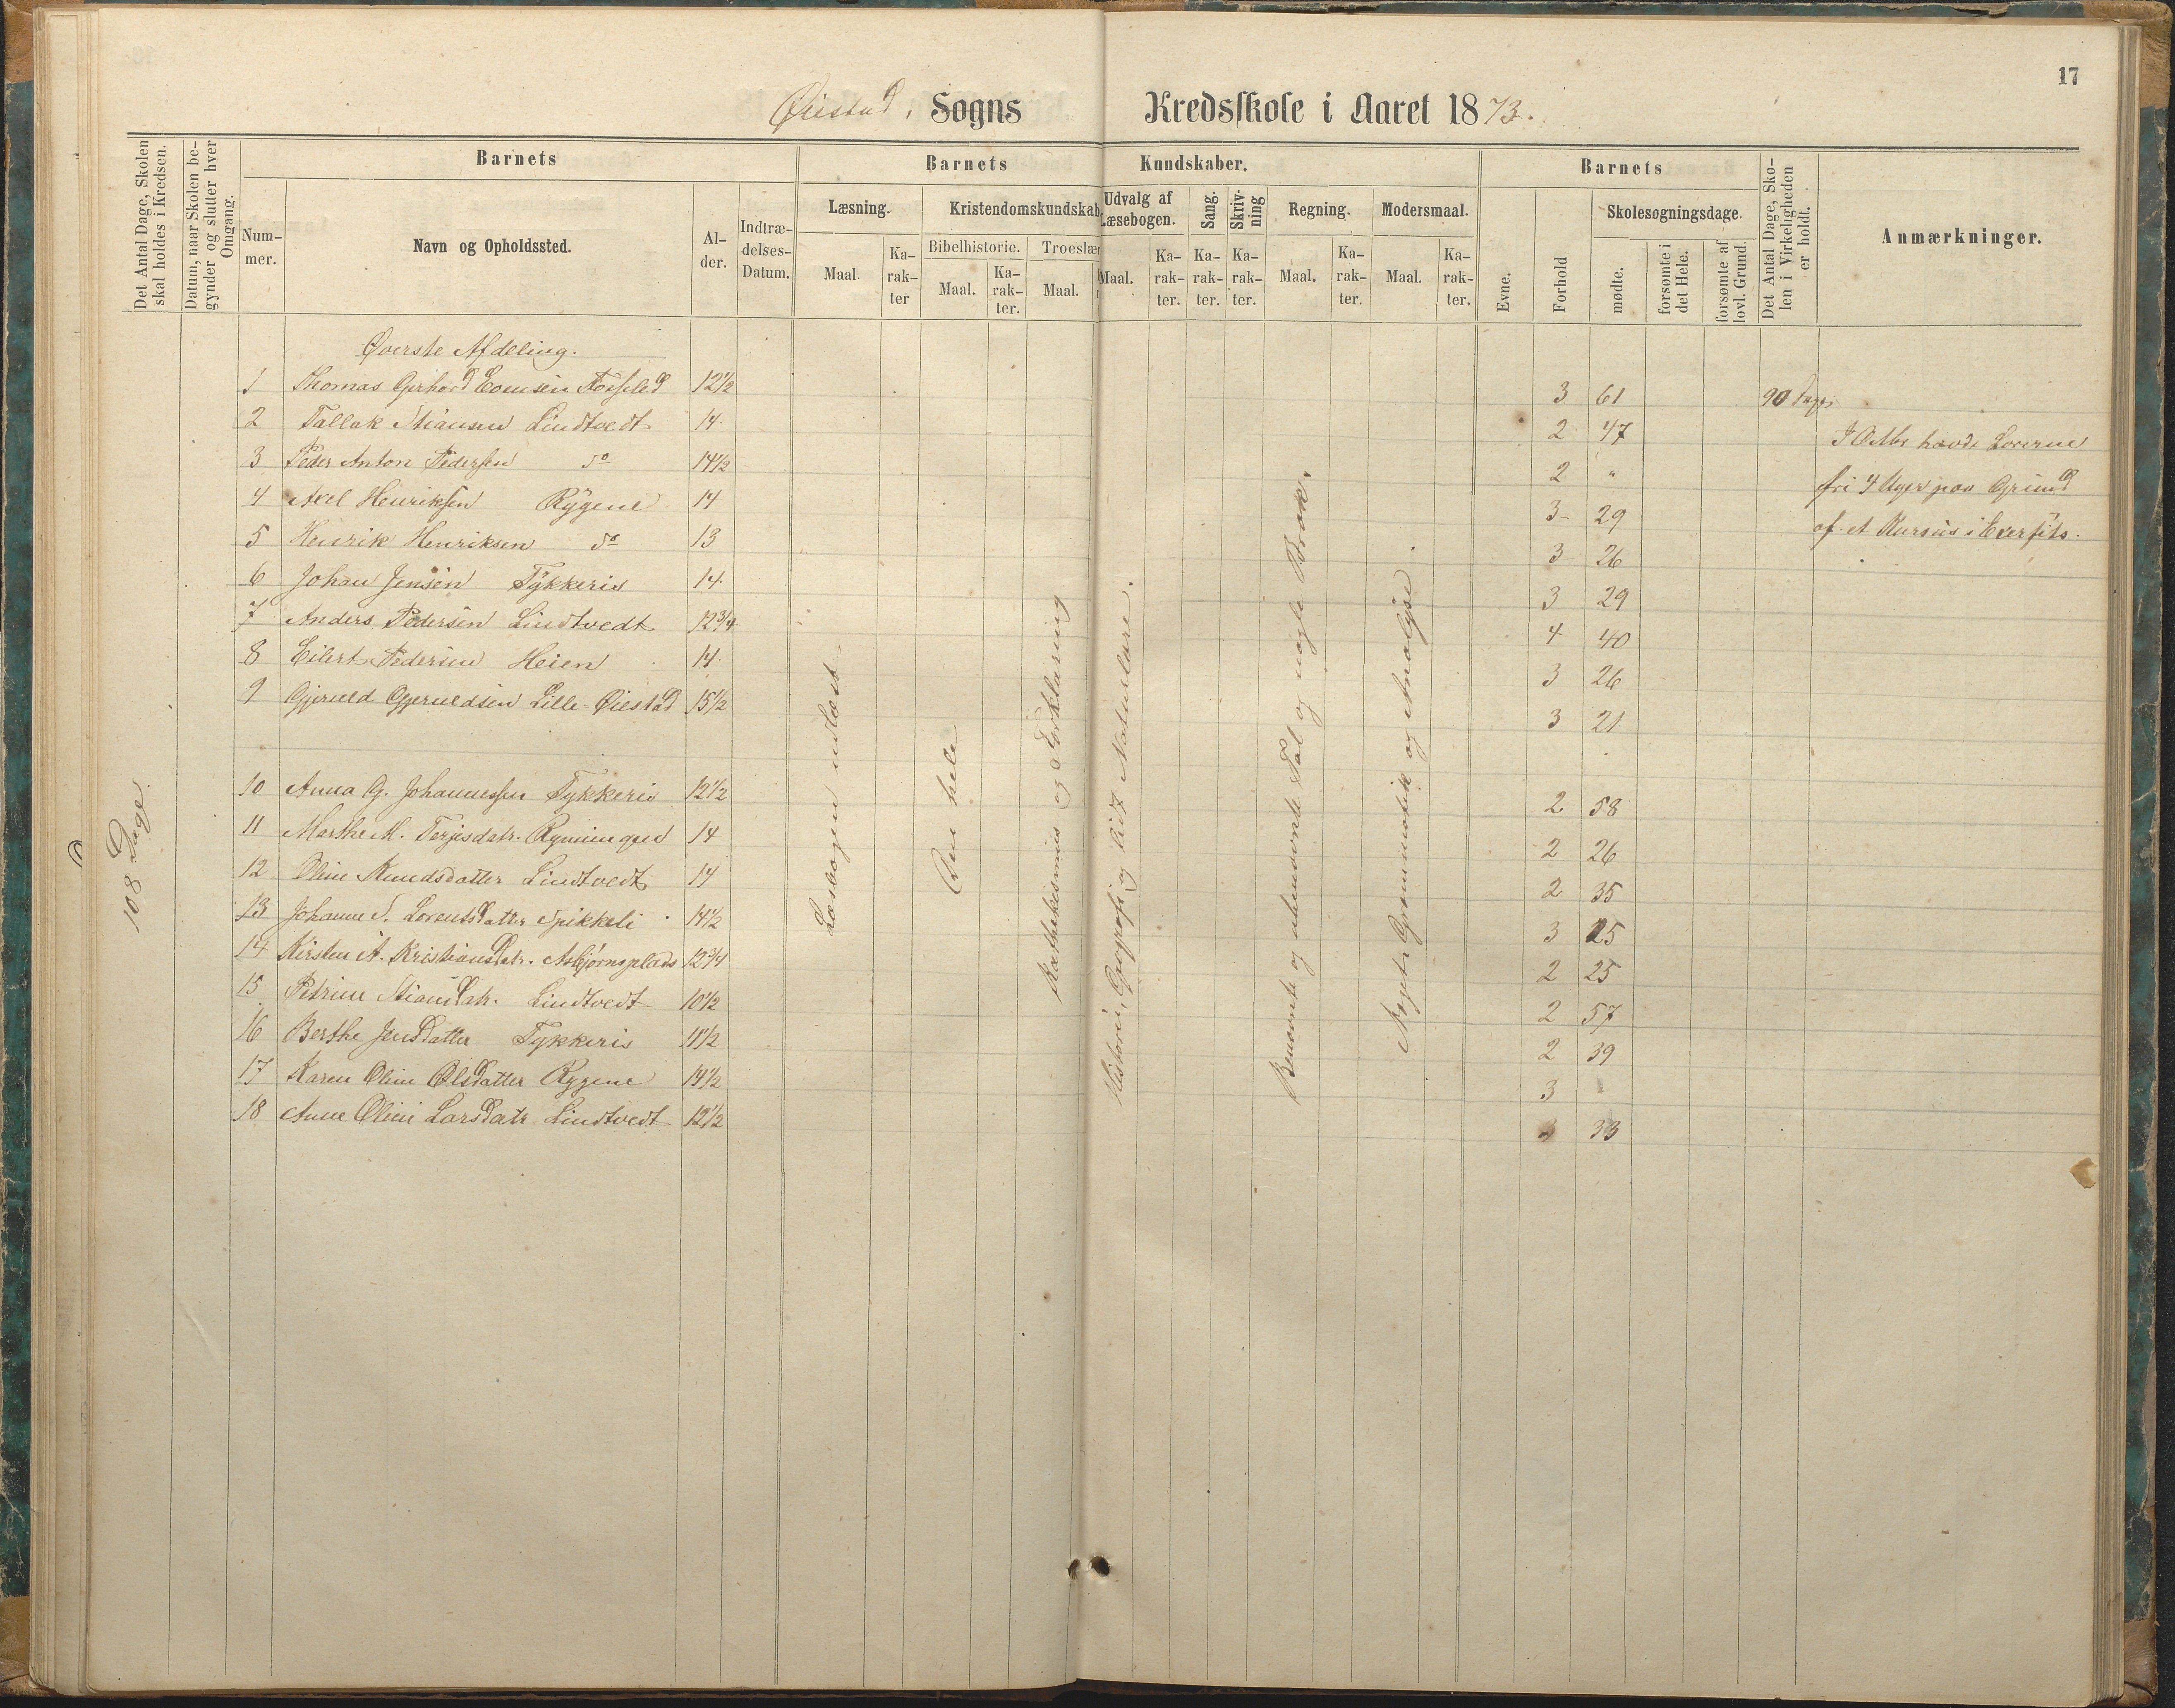 17
Øiestad, Sogns Kredsskole i Aaret 1873.
Det Antal Dage, Skolen skal holdes i Kredsen.
Datum, naar Skolen begynder og slutter hver Omgang.
Barnets
Nummer.
Navn og Opholdssted.
Alder.
Indtrædelses-Datum.
Barnets Kundskaber.
Læsning.
Maal.
Karakter
Kristendomskundskab.
Bibelhistorie.
Maal.
Karakter.
Troeslær
Maal.
Udvalg af Læsebogen.
Maal.
Karakter.
Sang.
Karakter.
Skrivning
Karakter.
Regning.
Maal.
Karakter.
Modersmaal.
Maal.
Karakter.
Barnets
Evne.
Forhold
Skolesøgningsdage.
mødte.
forsømte i det Hele.
forsømte af lovl. Grund.
Det Antal Dage, Skolen i Virkeligheden er holdt.
Anmærkninger.
Øverste Afdeling.
1 Thomas Gerhard 12½ 3 61 90 Dage
2 Tallak Stiansen Lindtvedt 14 2 47
3 Peder Anton Pedersen do 14½ 2 "
4 Axel Henriksen Rygene 14 3 29
5 Henrik Henriksen do 13 3 26
6 Johan Jensen Tykkeris 14 3 29
7 Anders Pedersen Lindtvedt 12¾ 4 40
8 Eilert Pedersen Heien 14 3 26
9 Gjeruld Gjeruldsen Lille-Øiestad 15½ 3 21
10 Anna G. Johannessen Tykkeris 12½ 2 58
11 Marthe M. Terjesdatr. 14 2 26
12 Oline Knudsdatter Lindtvedt 14 2 35
13 Johanne S. Lorentsdatter Spikkeli 14½ 3 25
14 Kirsten A. Kristiansdatr. Asbjørnsplads 12¾ 2 25
15 Petrine Stiansdatr. Lindtvedt 10½ 2 57
16 Berthe Jensdatter Tykkeris 11½ 2 39
17 Karen Oline Olsdatter Rygene 14½ 3
18 Anne Oline Larsdatr Lindtvedt 12½ 33
108 Dage.
Læsebogen udlæst
Den hele
Kathekismus og Forklaring
Historie, Geografi og lidt Naturlære.
Benævnte og ubenævnte Tal og nogle Brøk.
Noget Grammatik og Analyse
I havde Lærerne
fri 4 Uger paa Grund
af et Kursus i Exersits.